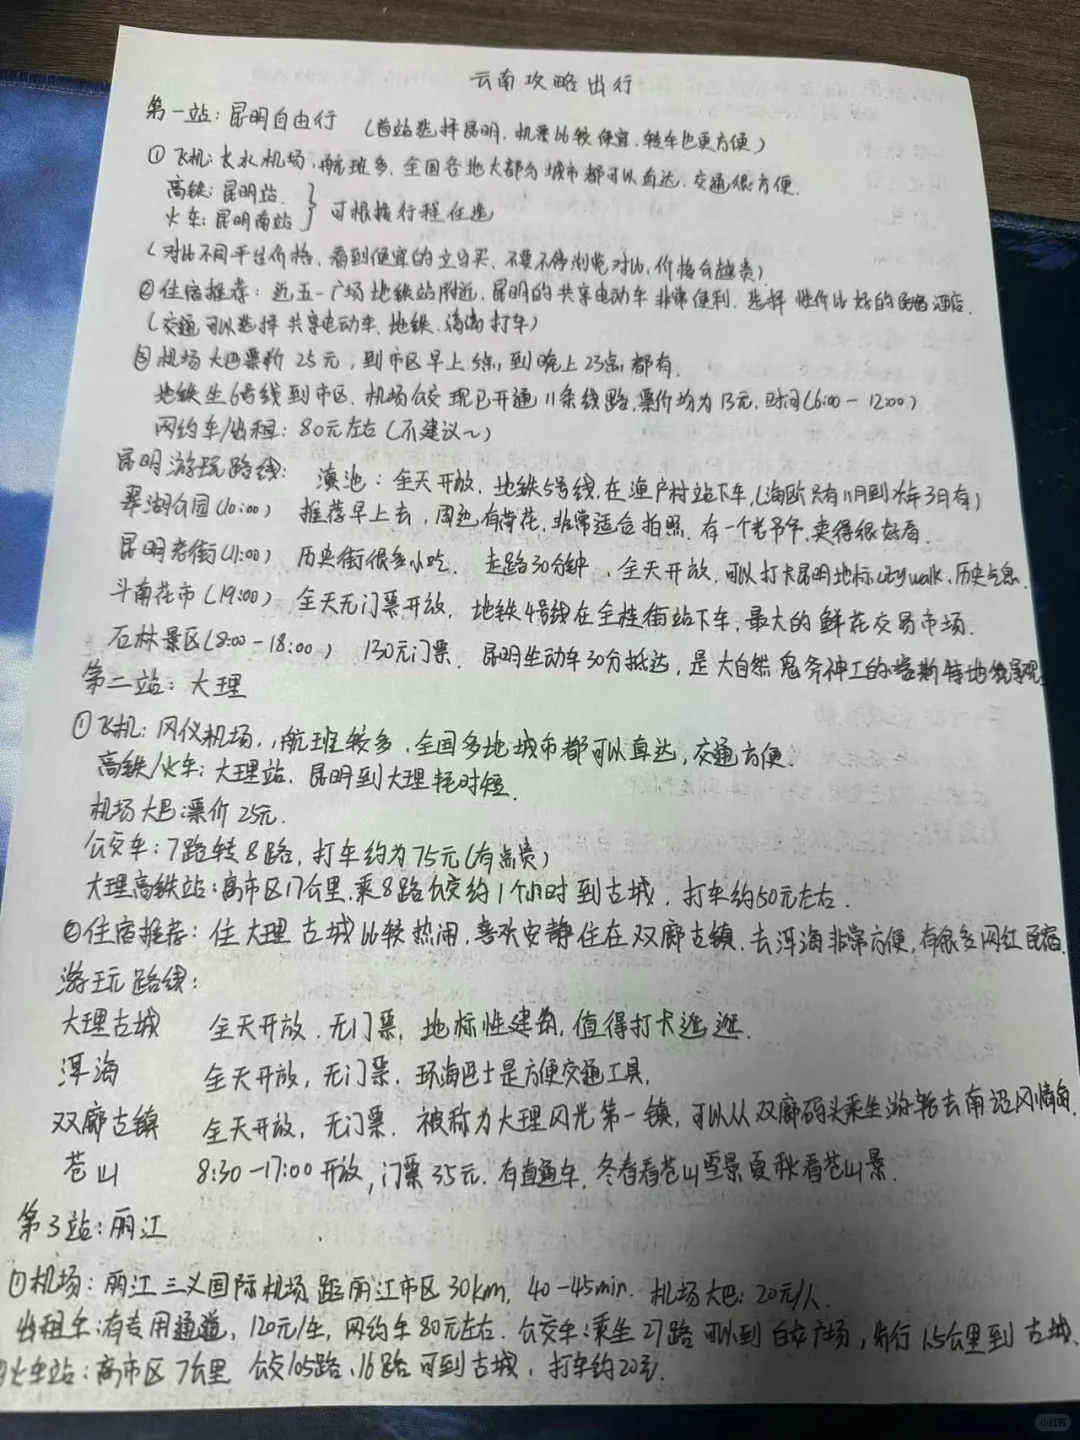 云南攻略出行
第一站：昆明自由行 （首站选择昆明，机票比较便宜，转车也更方便）
①飞机：长水机场，航班多，全国各地大部分城市都可以直达，交通很方便.
高铁：昆明站.
火车：昆明南站 } 可根据行程任选
（对比不同平台价格，看到便宜的立马买，不要不停浏览对比，价格会越贵）
②住宿推荐：近五一广场地铁站附近，昆明的共享电动车非常便利，选择性价比好的民宿酒店.
（交通可以选择共享电动车、地铁、滴滴打车）
③机场大巴票价25元，到市区早上5点到晚上23点都有.
地铁坐6号线到市区，机场公交现已开通11条线路，票价均为13元，时间（6:00-12:00）
网约车/出租：80元左右（不建议~）
昆明游玩路线： 滇池：全天开放，地铁5号线，在渔户村站下车，（海鸥只有11月到次年3月有）
翠湖公园（10:00） 推荐早上去，周边有荷花，非常适合拍照，有一个老爷爷，卖得很好看.
昆明老街（11:00） 历史街很多小吃. 走路30分钟，全天开放，可以打卡昆明地标city walk，历史气息.
斗南花市（19:00） 全天无门票开放，地铁4号线在金桂街站下车，最大的鲜花交易市场.
石林景区（8:00-18:00） 130元门票. 昆明坐动车30分抵达，是大自然鬼斧神工的喀斯特地貌景观
第二站：大理
①飞机：凤仪机场，航班较多，全国多地城市都可以直达，交通方便.
高铁/火车：大理站，昆明到大理耗时短.
机场大巴：票价25元.
公交车：7路转8路，打车约为75元（有点贵）
大理高铁站：离市区17公里，乘8路公交约1个小时到古城，打车约50元左右.
②住宿推荐：住大理古城比较热闹，喜欢安静住在双廊古镇，去洱海非常方便，有很多网红民宿.
游玩路线：
大理古城 全天开放，无门票，地标性建筑，值得打卡逛逛.
洱海 全天开放，无门票，环海巴士是方便交通工具，
双廊古镇 全天开放，无门票. 被称为大理风光第一镇，可以从双廊码头乘坐游轮去南诏风情岛.
苍山 8:30-17:00开放，门票35元. 有直通车，冬春看苍山雪景夏秋看苍山景.
第3站：丽江
①机场：丽江三义国际机场，距丽江市区30km，40-45min. 机场大巴：20元/人
出租车：有专用通道，120元/车，网约车80元左右. 公交车：乘坐27路可以到白龙广场，步行1.5公里到古城、
火车站：离市区7公里 公交105路、16路可到古城，打车约20元.
小红书